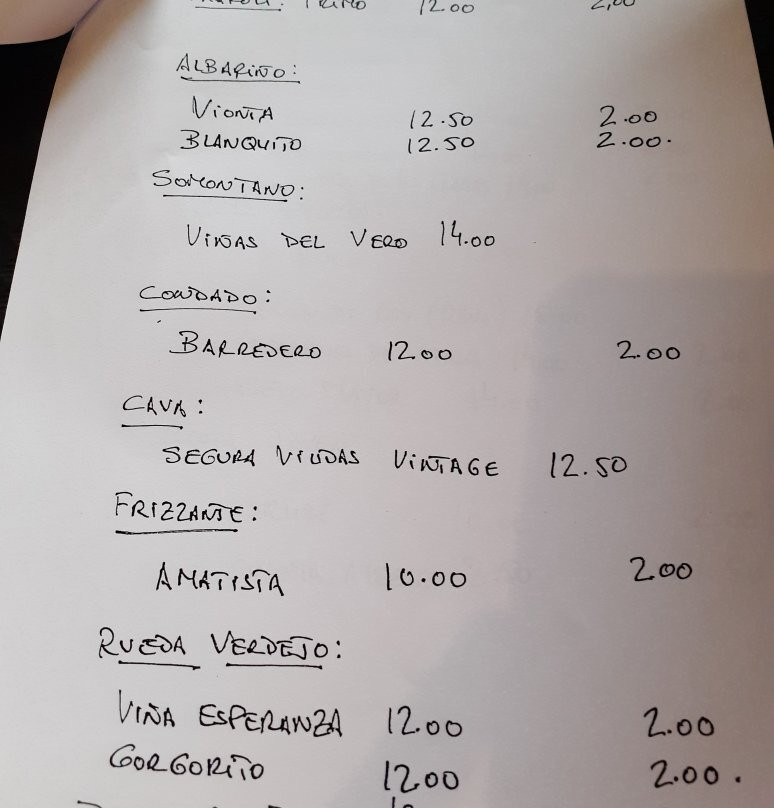 12.00 2,00
ALBARIÑO:
VIONTA 12.50 2.00
BLANQUITO 12.50 2.00.
SOMONTANO:
VIÑAS DEL VERO 14.00
CONDADO:
BARREDERO 12.00 2.00
CAVA:
SEGURA VIUDAS VINTAGE 12.50
FRIZZANTE:
AMATISTA 10.00 2.00
RUEDA VERDEJO:
VIÑA ESPERANZA 12.00 2.00
GORGORITO 12.00 2.00.